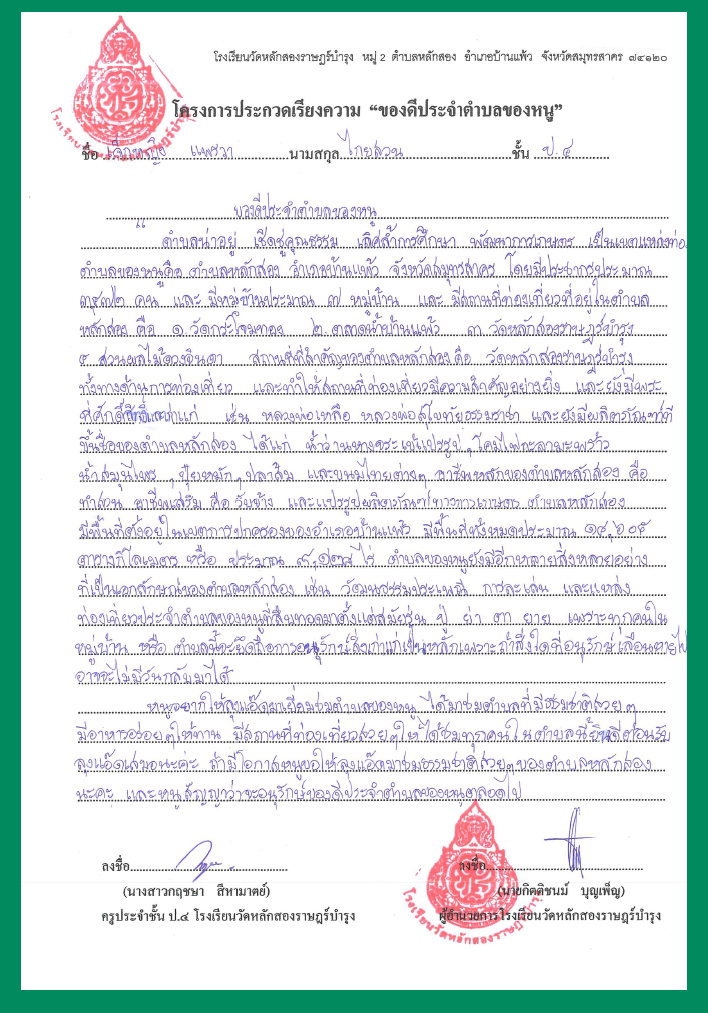 โรงเรียนวัดหลักสองราษฎร์บำรุง หมู่ 2 ตำบลหลักสอง อำเภอบ้านแพ้ว จังหวัดสมุทรสาคร ๗๔๑๒๐
โครงการประกวดเรียงความ “ของดีประจำตำบลของหนู”
ชื่อ เด็กหญิง แพรวา นามสกุล ไกยสวน ชั้น ป.๔
ของดีประจำตำบลของหนู
“ ตำบลน่าอยู่ เชิดชูคุณธรรม เลิศล้ำการศึกษา พัฒนาการเกษตร เป็นเขตแหล่งท่อง
ตำบลของหนูคือ ตำบลหลักสอง อำเภอบ้านแพ้ว จังหวัดสมุทรสาคร โดยมีประชากรประมาณ
คน และ มีหมู่บ้านประมาณ ๗ หมู่บ้าน และ มีสถานที่ท่องเที่ยวที่อยู่ในตำบล
หลักสอง คือ ๑.วัดกระโจมทอง ๒.ตลาดน้ำบ้านแพ้ว ๓.วัดหลักสองราษฎร์บำรุง
๔ สวนผลไม้ดวงอินตา สถานที่ที่สำคัญของตำบลหลักสอง คือ วัดหลักสองราษฎร์บำรุง
ทั้งทางด้านการท่องเที่ยว และทำให้สถานที่ท่องเที่ยวมีความสำคัญอย่างยิ่ง และยังมีพระ
ที่ศักดิ์สิทธิ์เก่าแก่ เช่น หลวงพ่อเหลือ หลวงพ่อสุโขทัยธรรมราชา และยังมีผลิตภัณฑ์ที่
ขึ้นชื่อของตำบลหลักสอง ได้แก่ น้ำว่านหางจระเข้แปรรูป , โคมไฟกะลามะพร้าว
น้ำสมุนไพร , ปุ๋ยหมัก , ปลาส้ม และขนมไทยต่างๆ อาชีพหลักของตำบลหลักสอง คือ
ทำสวน อาชีพเสริม คือ รับจ้าง และแปรรูปผลิตภัณฑ์ทางการเกษตร ตำบลหลักสอง
มีพื้นที่ตั้งอยู่ในเขตการปกครองของอำเภอบ้านแพ้ว มีพื้นที่ทั้งหมดประมาณ ๑๔,๖๐๕
ตารางกิโลเมตร หรือ ประมาณ ๙,๑๒๘ ไร่ ตำบลของหนูยังมีอีกหลายสิ่งหลายอย่าง
ที่เป็นเอกลักษณ์ของตำบลหลักสอง เช่น วัฒนธรรมประเพณี การละเล่น และแหล่ง
ท่องเที่ยวประจำตำบลของหนูที่สืบทอดมาตั้งแต่สมัยรุ่น ปู่ ย่า ตา ยาย เพราะทุกคนใน
หมู่บ้าน หรือ ตำบลนี้จะยึดถือการอนุรักษ์สิ่งเก่าแก่เป็นหลักเพราะถ้าสิ่งใดที่อนุรักษ์เลือนหายไป
อาจจะไม่มีวันกลับมาได้
หนูอยากให้ลุงแอ๊ดมาเยี่ยมชมตำบลของหนู ได้มาชมตำบลที่มีธรรมชาติสวย ๆ
มีอาหารอร่อย ๆ ให้ทาน มีสถานที่ท่องเที่ยวสวย ๆ ให้ได้ชมทุกคนในตำบลนี้ยินดีต้อนรับ
ลุงแอ๊ดเสมอนะค่ะ ถ้ามีโอกาสหนูขอให้ลุงแอ๊ดมาชมธรรมชาติสวยๆของตำบลหลักสอง
นะคะ และหนูสัญญาว่าจะอนุรักษ์ของดีประจำตำบลของหนูตลอดไป
ลงชื่อ
(นางสาวกฤชษา สีหามาตย์)
ครูประจำชั้น ป.๔ โรงเรียนวัดหลักสองราษฎร์บำรุง
ลงชื่อ
(นายกิตติชนม์ บุญเพ็ญ)
ผู้อำนวยการโรงเรียนวัดหลักสองราษฎร์บำรุง
โรงเรียนวัดหลักสองราษฎร์บำรุง
โรงเรียนวัดหลักสองราษฎร์บำรุง